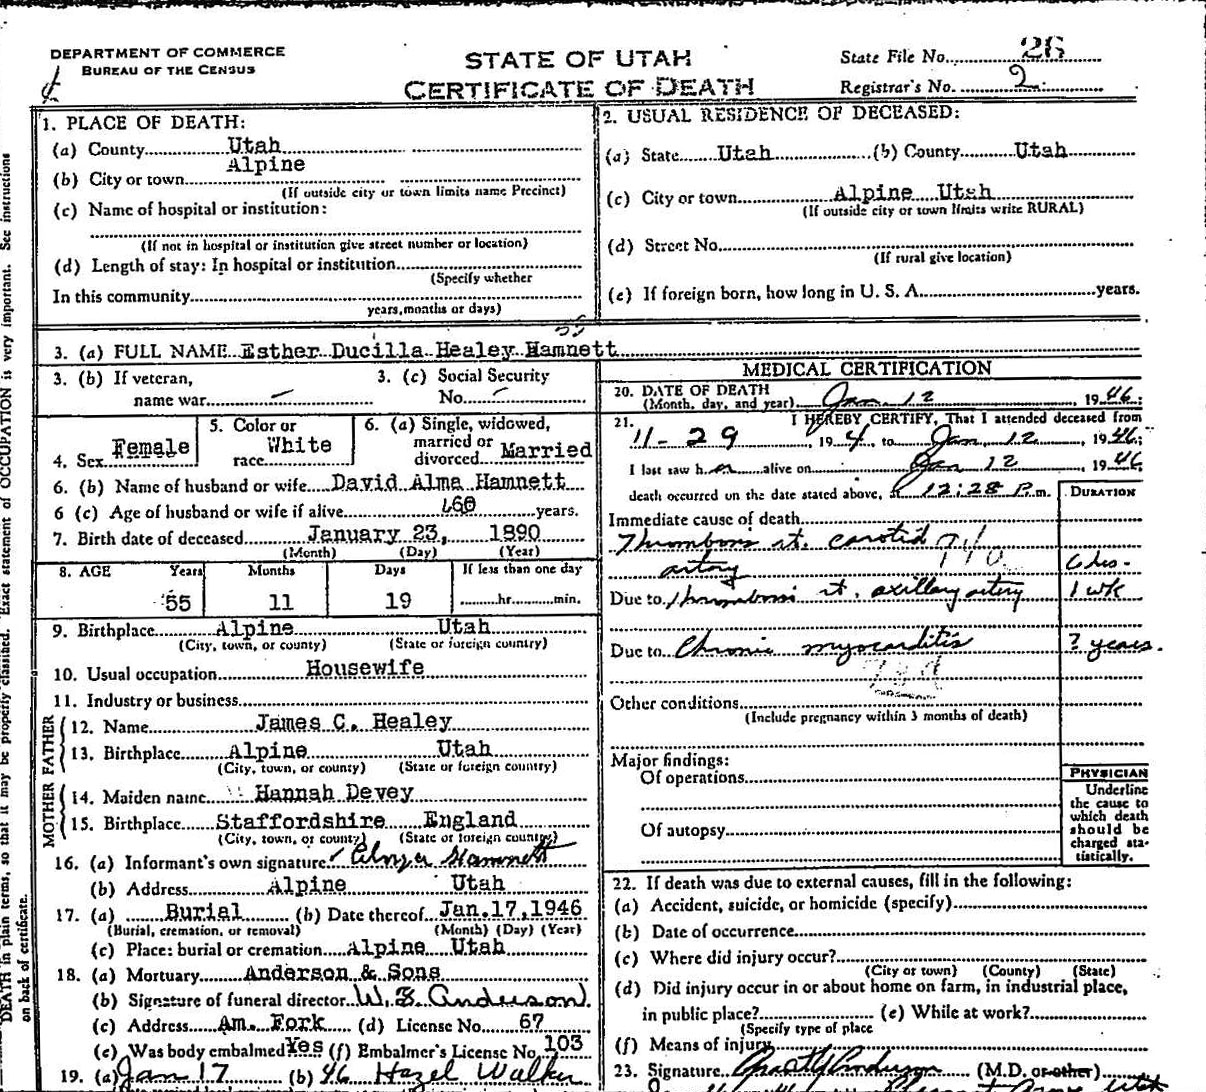 DEPARTMENT OF COMMERCE
BUREAU OF THE CENSUS
STATE OF UTAH
CERTIFICATE OF DEATH
State File No. 26
Registrar's No. 2
1. PLACE OF DEATH:
(a) County Utah
(b) City or town Alpine
(If outside city or town limits name Precinct)
(c) Name of hospital or institution:
(If not in hospital or institution give street number or location)
(d) Length of stay: In hospital or institution
(Specify whether
In this community
years, months or days)
2. USUAL RESIDENCE OF DECEASED:
(a) State Utah (b) County Utah
(c) City or town Alpine Utah
(If outside city or town limits write RURAL)
(d) Street No.
(If rural give location)
(e) If foreign born, how long in U. S. A. years.
3. (a) FULL NAME Esther Ducilla Healey Hamnett
3. (b) If veteran,
name war
3. (c) Social Security
No.
4. Sex Female
5. Color or
race White
6. (a) Single, widowed,
married or
divorced Married
6. (b) Name of husband or wife David Alma Hamnett
6 (c) Age of husband or wife if alive 60 years.
7. Birth date of deceased January 23, 1890
(Month) (Day) (Year)
8. AGE Years Months Days If less than one day
55 11 19 hr. min.
9. Birthplace Alpine Utah
(City, town, or county) (State or foreign country)
10. Usual occupation Housewife
11. Industry or business
FATHER
12. Name James C. Healey
13. Birthplace Alpine Utah
(City, town, or county) (State or foreign country)
MOTHER
14. Maiden name Hannah Devey
15. Birthplace Staffordshire England
(City, town, or county) (State or foreign country)
16. (a) Informant's own signature Hamnett
(b) Address Alpine Utah
17. (a) Burial (b) Date thereof Jan.17,1946
(Burial, cremation, or removal) (Month) (Day) (Year)
(c) Place: burial or cremation Alpine Utah
18. (a) Mortuary Anderson & Sons
(b) Signature of funeral director W. E. Anderson
(c) Address Am. Fork (d) License No. 67
(e) Was body embalmed Yes (f) Embalmer's License No. 103
19. (a) Jan 17 (b) 46 Hazel Walker
MEDICAL CERTIFICATION
20. DATE OF DEATH
(Month, day, and year) Jan 12, 1946;
21. I HEREBY CERTIFY, That I attended deceased from
11-29, 194, to Jan, 12, 1946;
I last saw her alive on Jan 12, 1946
death occurred on the date stated above, 12:28 P.m.
DURATION
Immediate cause of death
Thrombosis rt. carotid
artery 6 hrs.
Due to thrombosis rt. axillary artery 1 wk
Due to Chronic myocarditis ? years.
Other conditions
(Include pregnancy within 3 months of death)
Major findings:
Of operations
Of autopsy
PHYSICIAN
Underline
the cause to
which death
should be
charged sta-
tistically.
22. If death was due to external causes, fill in the following:
(a) Accident, suicide, or homicide (specify)
(b) Date of occurrence
(c) Where did injury occur?
(City or town) (County) (State)
(d) Did injury occur in or about home on farm, in industrial place,
in public place? (e) While at work?
(Specify type of place
(f) Means of injury
23. Signature (M.D. or other)
DEATH in plain terms, so that it may be properly classified. Exact statement of OCCUPATION is very important. See instructions
on back of certificate.